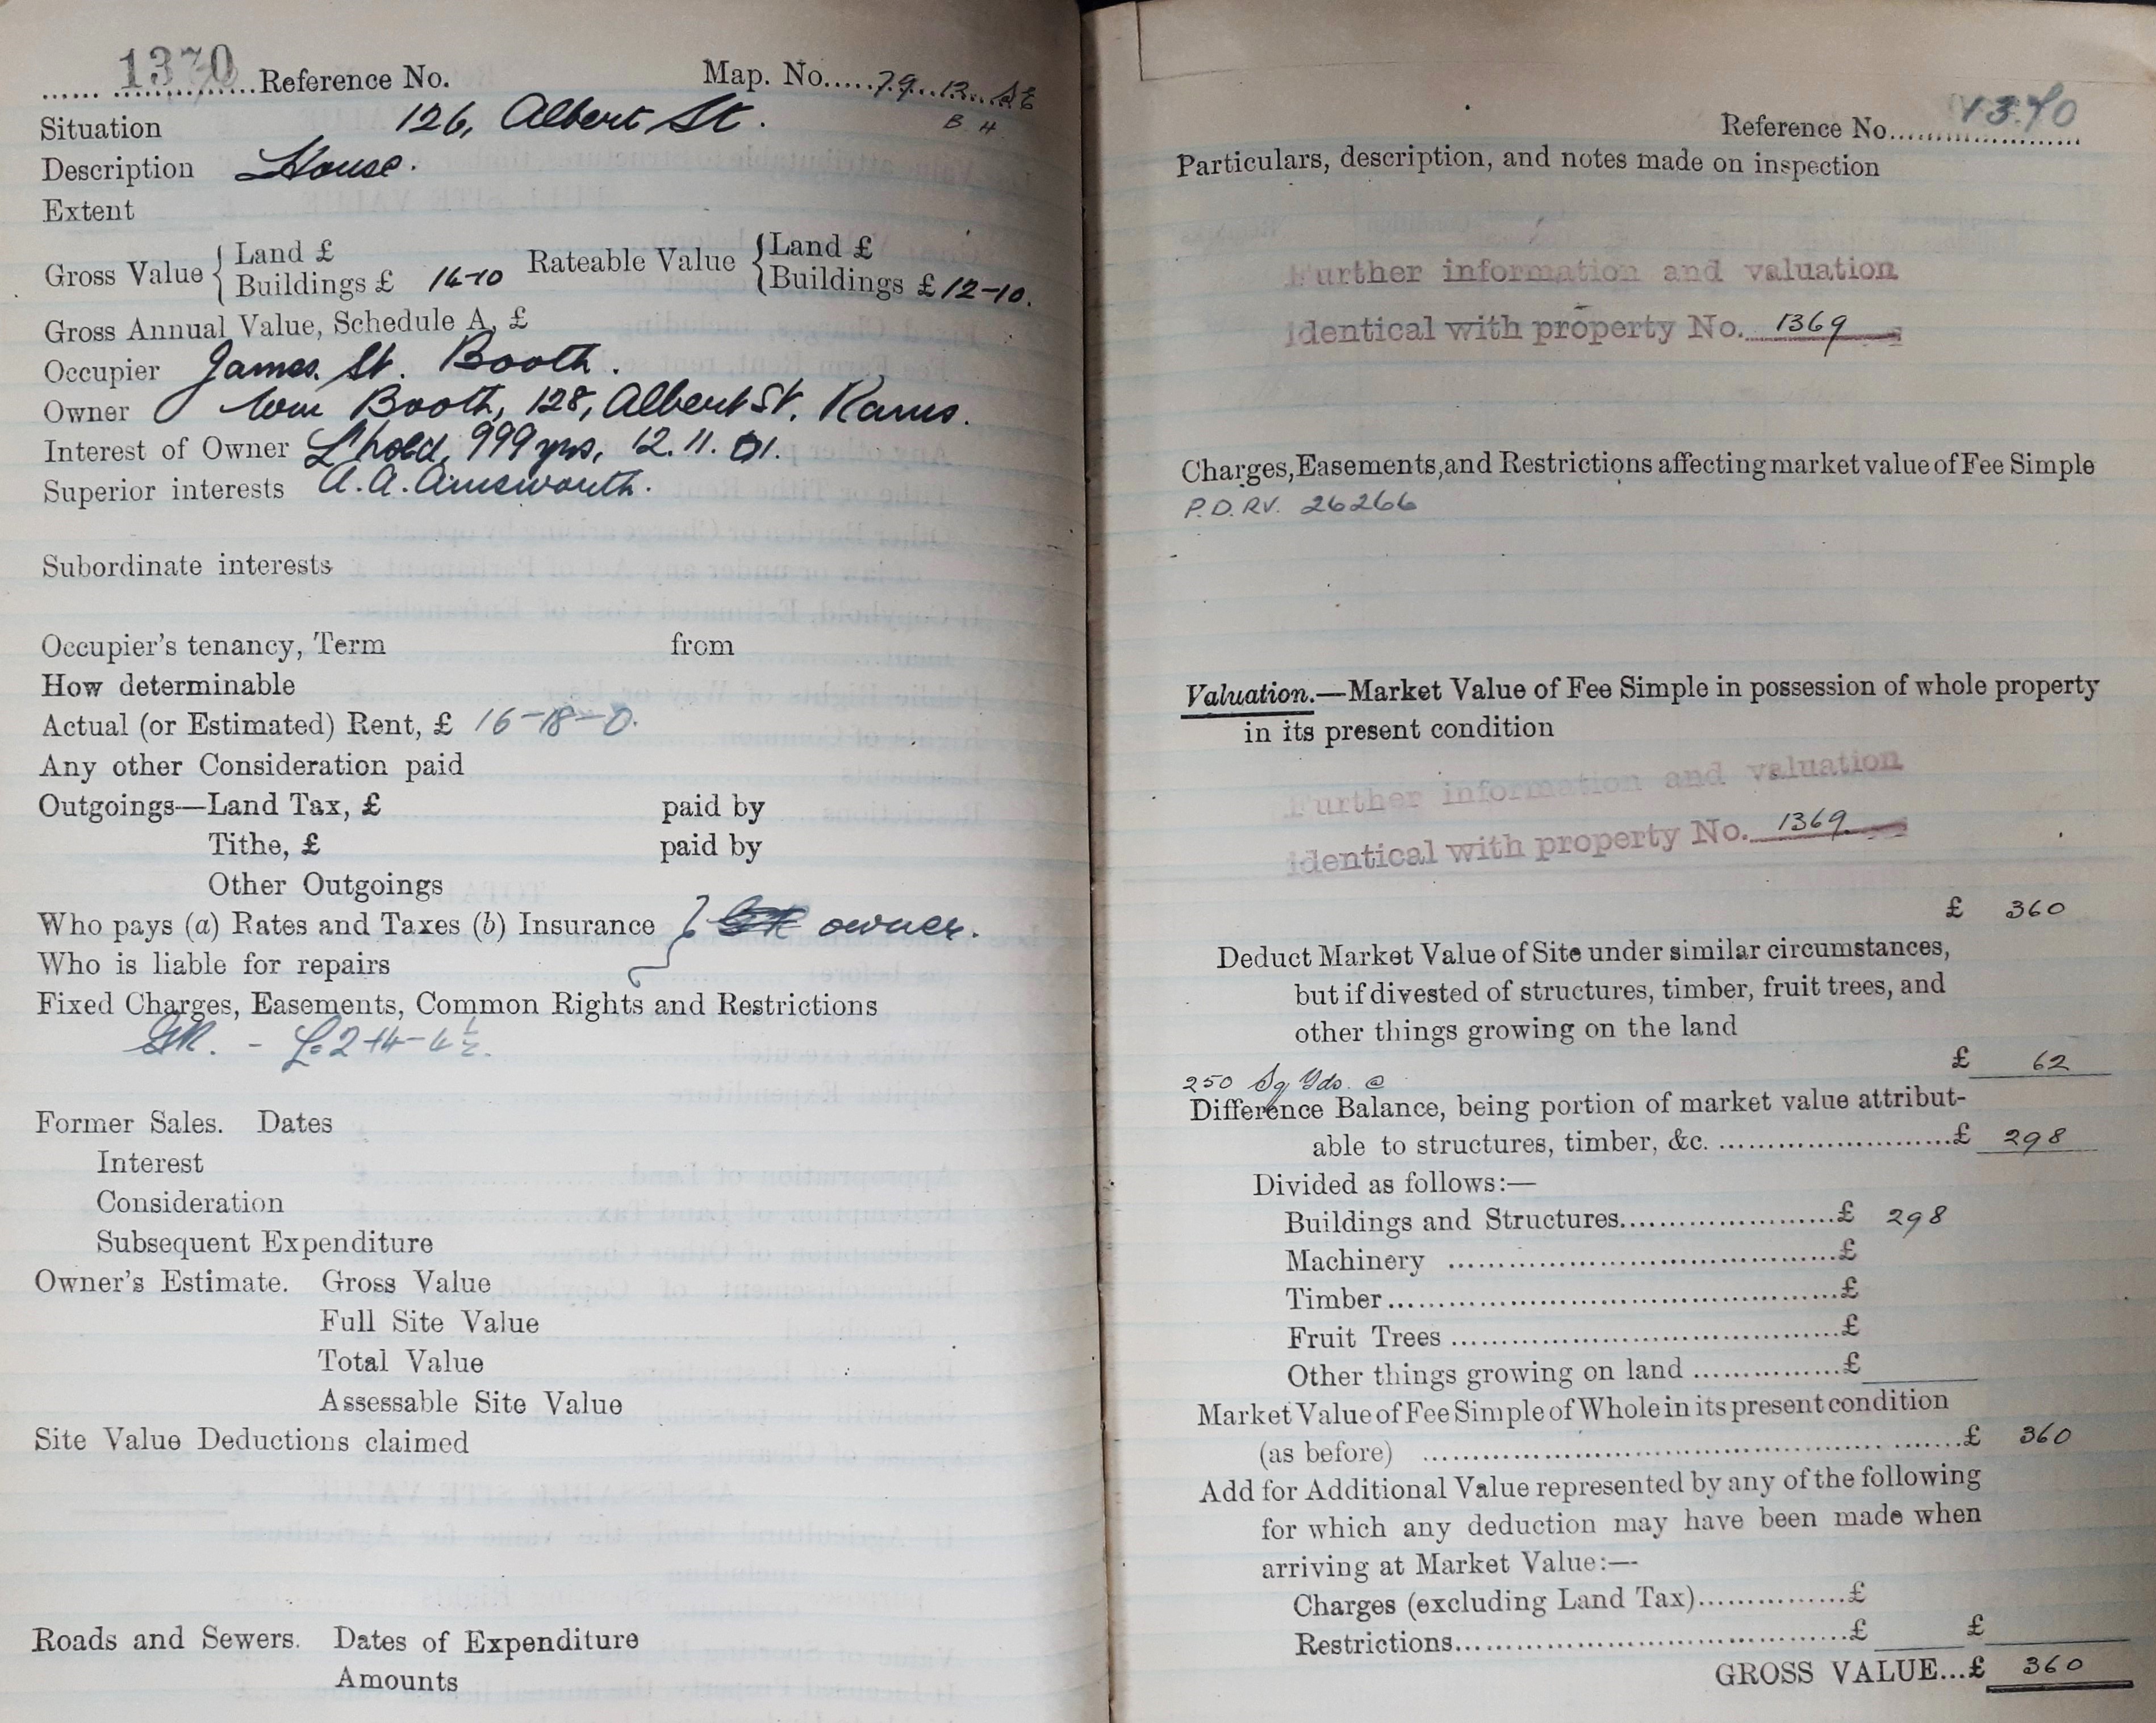 1370 Reference No. Map. No. 79. 13. SE
B H
Situation 126, Albert St.
Description House.
Extent
Gross Value { Land £
Buildings £ 14-10
Rateable Value { Land £
Buildings £ 12-10.
Gross Annual Value, Schedule A, £
Occupier James. St. Booth.
Owner Wm Booth, 128, Albert St. Rams.
Interest of Owner L'hold, 999 yrs, 12.11.01.
Superior interests A.A. Ainsworth.
Subordinate interests
Occupier's tenancy, Term from
How determinable
Actual (or Estimated) Rent, £ 16-18-0.
Any other Consideration paid
Outgoings—Land Tax, £ paid by
Tithe, £ paid by
Other Outgoings
Who pays (a) Rates and Taxes (b) Insurance } owner.
Who is liable for repairs
Fixed Charges, Easements, Common Rights and Restrictions
GR. - £2-14-4½.
Former Sales. Dates
Interest
Consideration
Subsequent Expenditure
Owner's Estimate. Gross Value
Full Site Value
Total Value
Assessable Site Value
Site Value Deductions claimed
Roads and Sewers. Dates of Expenditure
Amounts
Reference No. 1370
Particulars, description, and notes made on inspection
Further information and valuation
identical with property No. 1369
Charges, Easements, and Restrictions affecting market value of Fee Simple
P.D. RV. 26266
Valuation.—Market Value of Fee Simple in possession of whole property
in its present condition
Further information and valuation
identical with property No. 1369
£ 360
Deduct Market Value of Site under similar circumstances,
but if divested of structures, timber, fruit trees, and
other things growing on the land
£ 62
250 Sq Yds. @
Difference Balance, being portion of market value attribut-
able to structures, timber, &c. £ 298
Divided as follows:—
Buildings and Structures £ 298
Machinery £
Timber £
Fruit Trees £
Other things growing on land £
Market Value of Fee Simple of Whole in its present condition
(as before) £ 360
Add for Additional Value represented by any of the following
for which any deduction may have been made when
arriving at Market Value:—
Charges (excluding Land Tax) £
Restrictions £ £
GROSS VALUE...£ 360